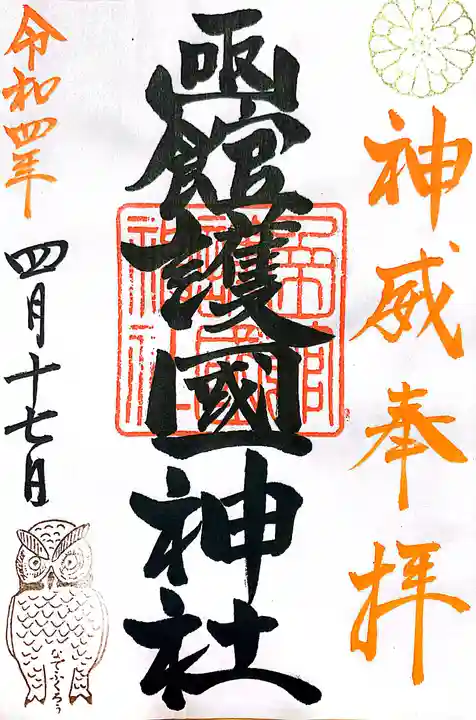 神威奉拝
函館護國神社
令和四年
四月十七日
なでふくろう